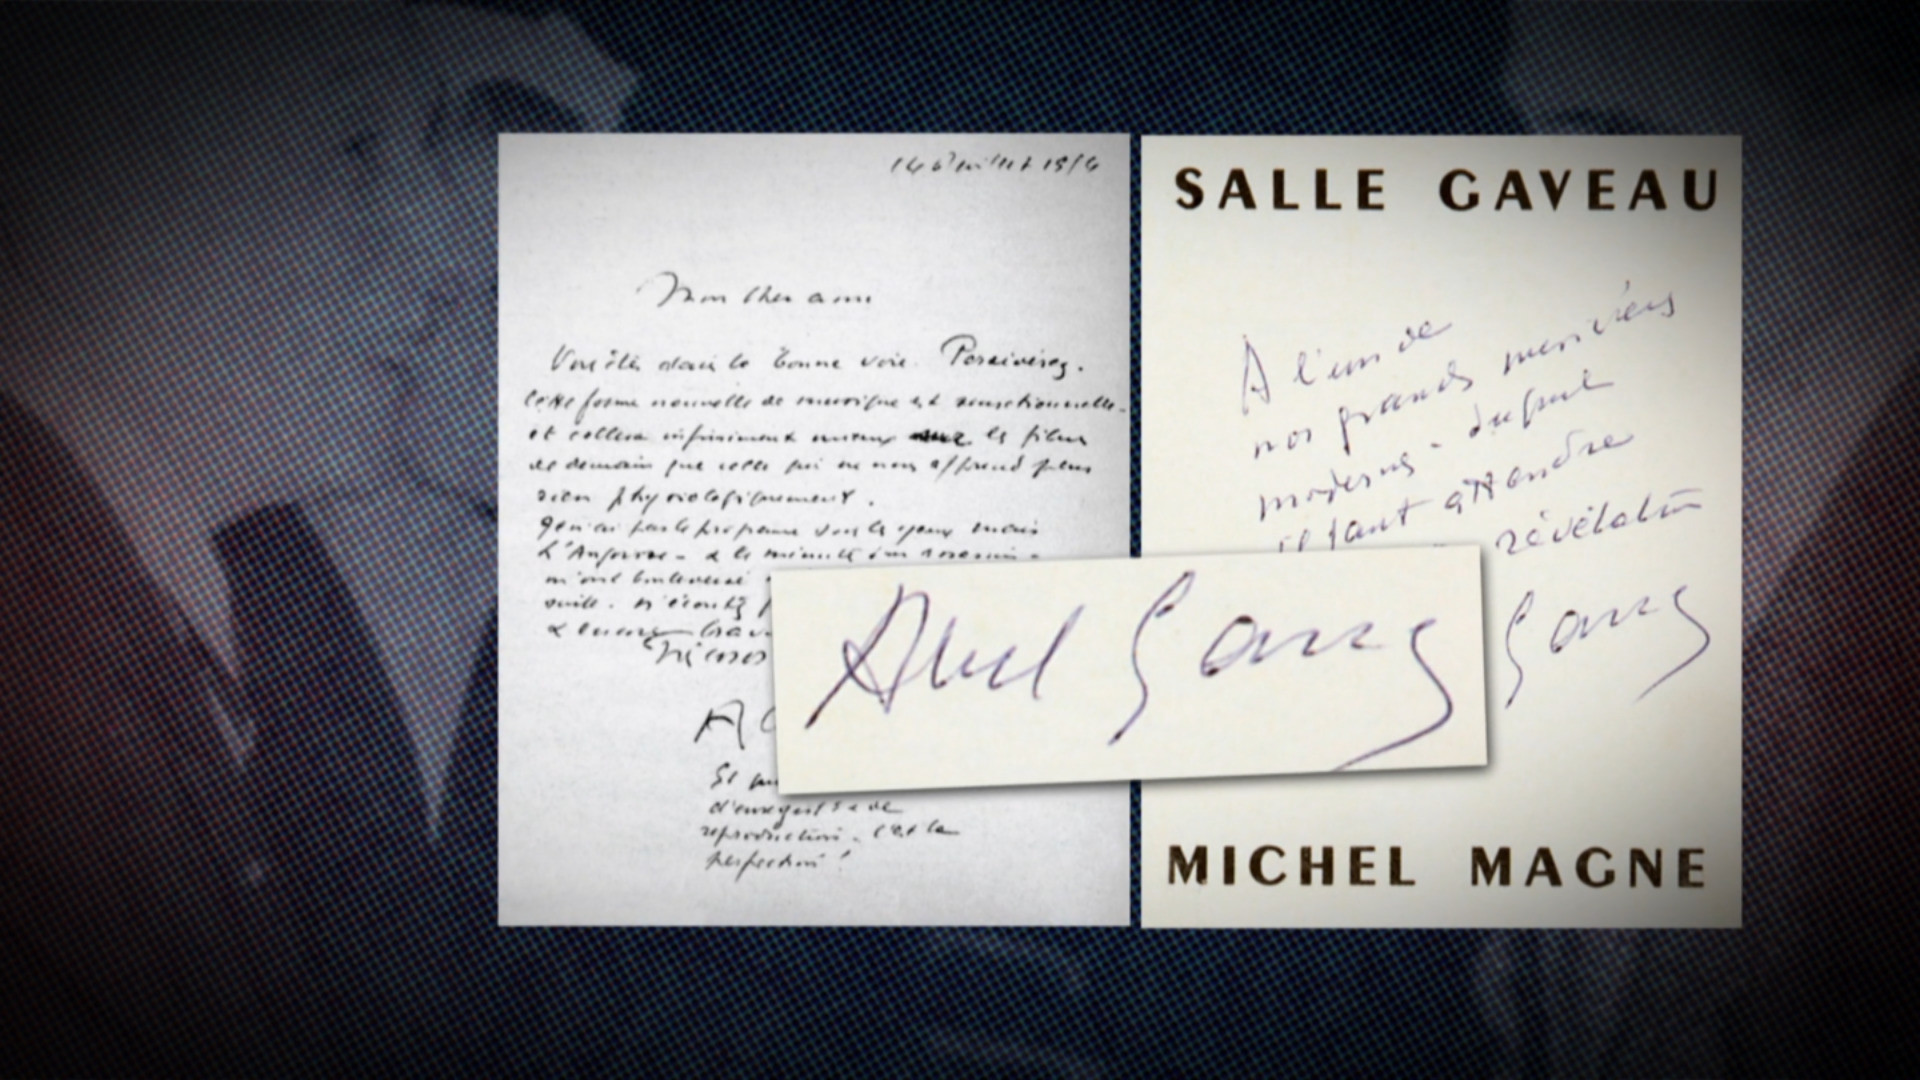 14 Juillet 1954
Mon cher ami
Vous êtes dans la bonne voie. Persévérez.
Cette forme nouvelle de musique est sensationnelle
et collera infiniment mieux les films
de demain que celle qui ne nous apprend plus
rien physiologiquement.
Je n'ai pas le programme sous les yeux mais
L'Angoisse - & la minute d'un
m'ont bouleversé
suite.
& encore
A
Et
d'enregistre de
reproduction. C'est la
perfection !
SALLE GAVEAU
A l'un de
nos grands musiciens
modernes - duquel
il faut attendre
révélation
Abel Gance
Gance
MICHEL MAGNE